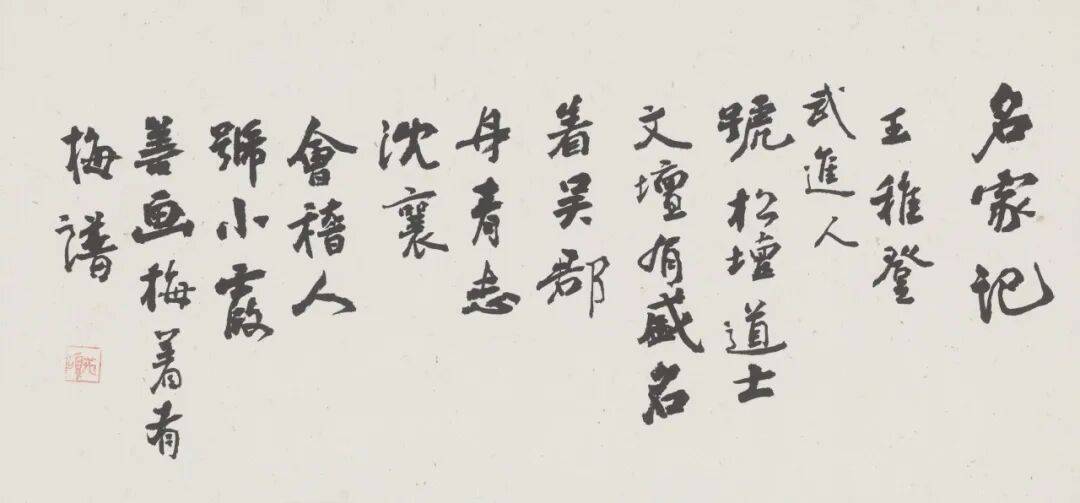 名家记
王稚登
武進人
號松壇道士
文壇有盛名
着吴郡
丹青志
沈襄
會稽人
號小霞
善画梅着有
梅谱